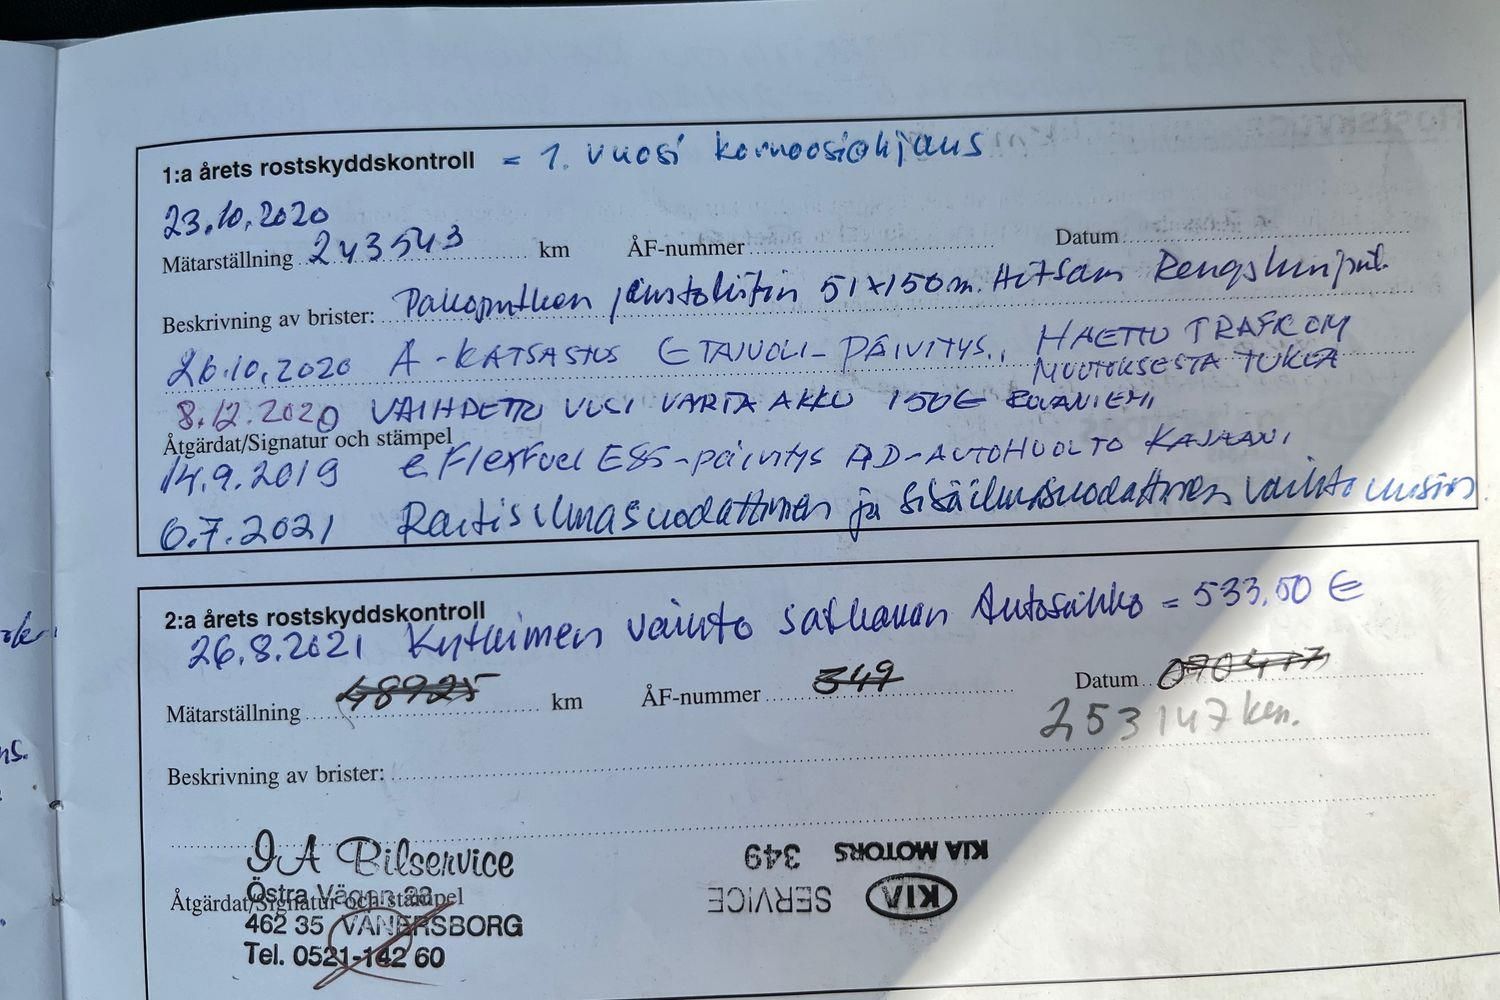 1:a årets rostskyddskontroll = 1. vuosi
23.10.2020
Mätarställning 243543 km ÅF-nummer Datum
Beskrivning av brister: Pakoputken 51x150m.
26.10.2020 A-KATSASTUS ETANOLI-PÄIVITYS., HAETTU TRAFICOM
MUUTOKSESTA TUKEA
8.12.2020 VAIHDETTU UUSI VARTA AKKU 150€ ROVANIEMI
Åtgärdat/Signatur och stämpel
14.9.2019 eFlexfuel E85-päivitys AD-AUTOHUOLTO KAJAANI
6.7.2021 Raitisilmasuodattimen ja sisäilmasuodattimen vaihto uusiin
2:a årets rostskyddskontroll
26.8.2021 Kytkimen vaihto Autosähkö = 533,50 €
Mätarställning 48925 km ÅF-nummer 349 Datum 090417
253147 km.
Beskrivning av brister:
IA Bilservice
349 KIA MOTORS
Östra Vägen 22
Åtgärdat/Signatur och stämpel
SERVICE KIA
462 35 VÄNERSBORG
Tel. 0521-142 60